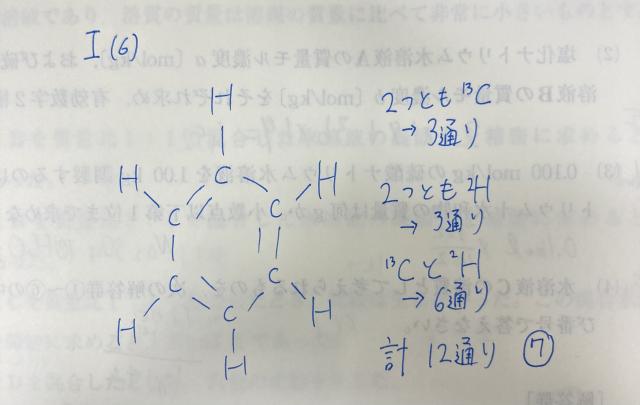 I (6)
H
H C H
C C
C C
H C H
H
2つとも ¹³C
→ 3通り
2つとも ²H
→ 3通り
¹³Cと²H
→ 6通り
計 12通り ⑦
(2) 塩化ナトリウム水溶液Aの質量モル濃度 a [mol/kg], および硫
溶液Bの質量モル [mol/kg] をそれぞれ求め、有効数字2桁
(3) 0.100 mol/kg の硫酸ナトリウム水溶液を 1.00 調製するのに
トリウム の質量は何 g か。小数点以下第1位まで求めな
(4) 水溶液C として考えられるものを の解答群①~⑤の中
び番号で答えなさい。